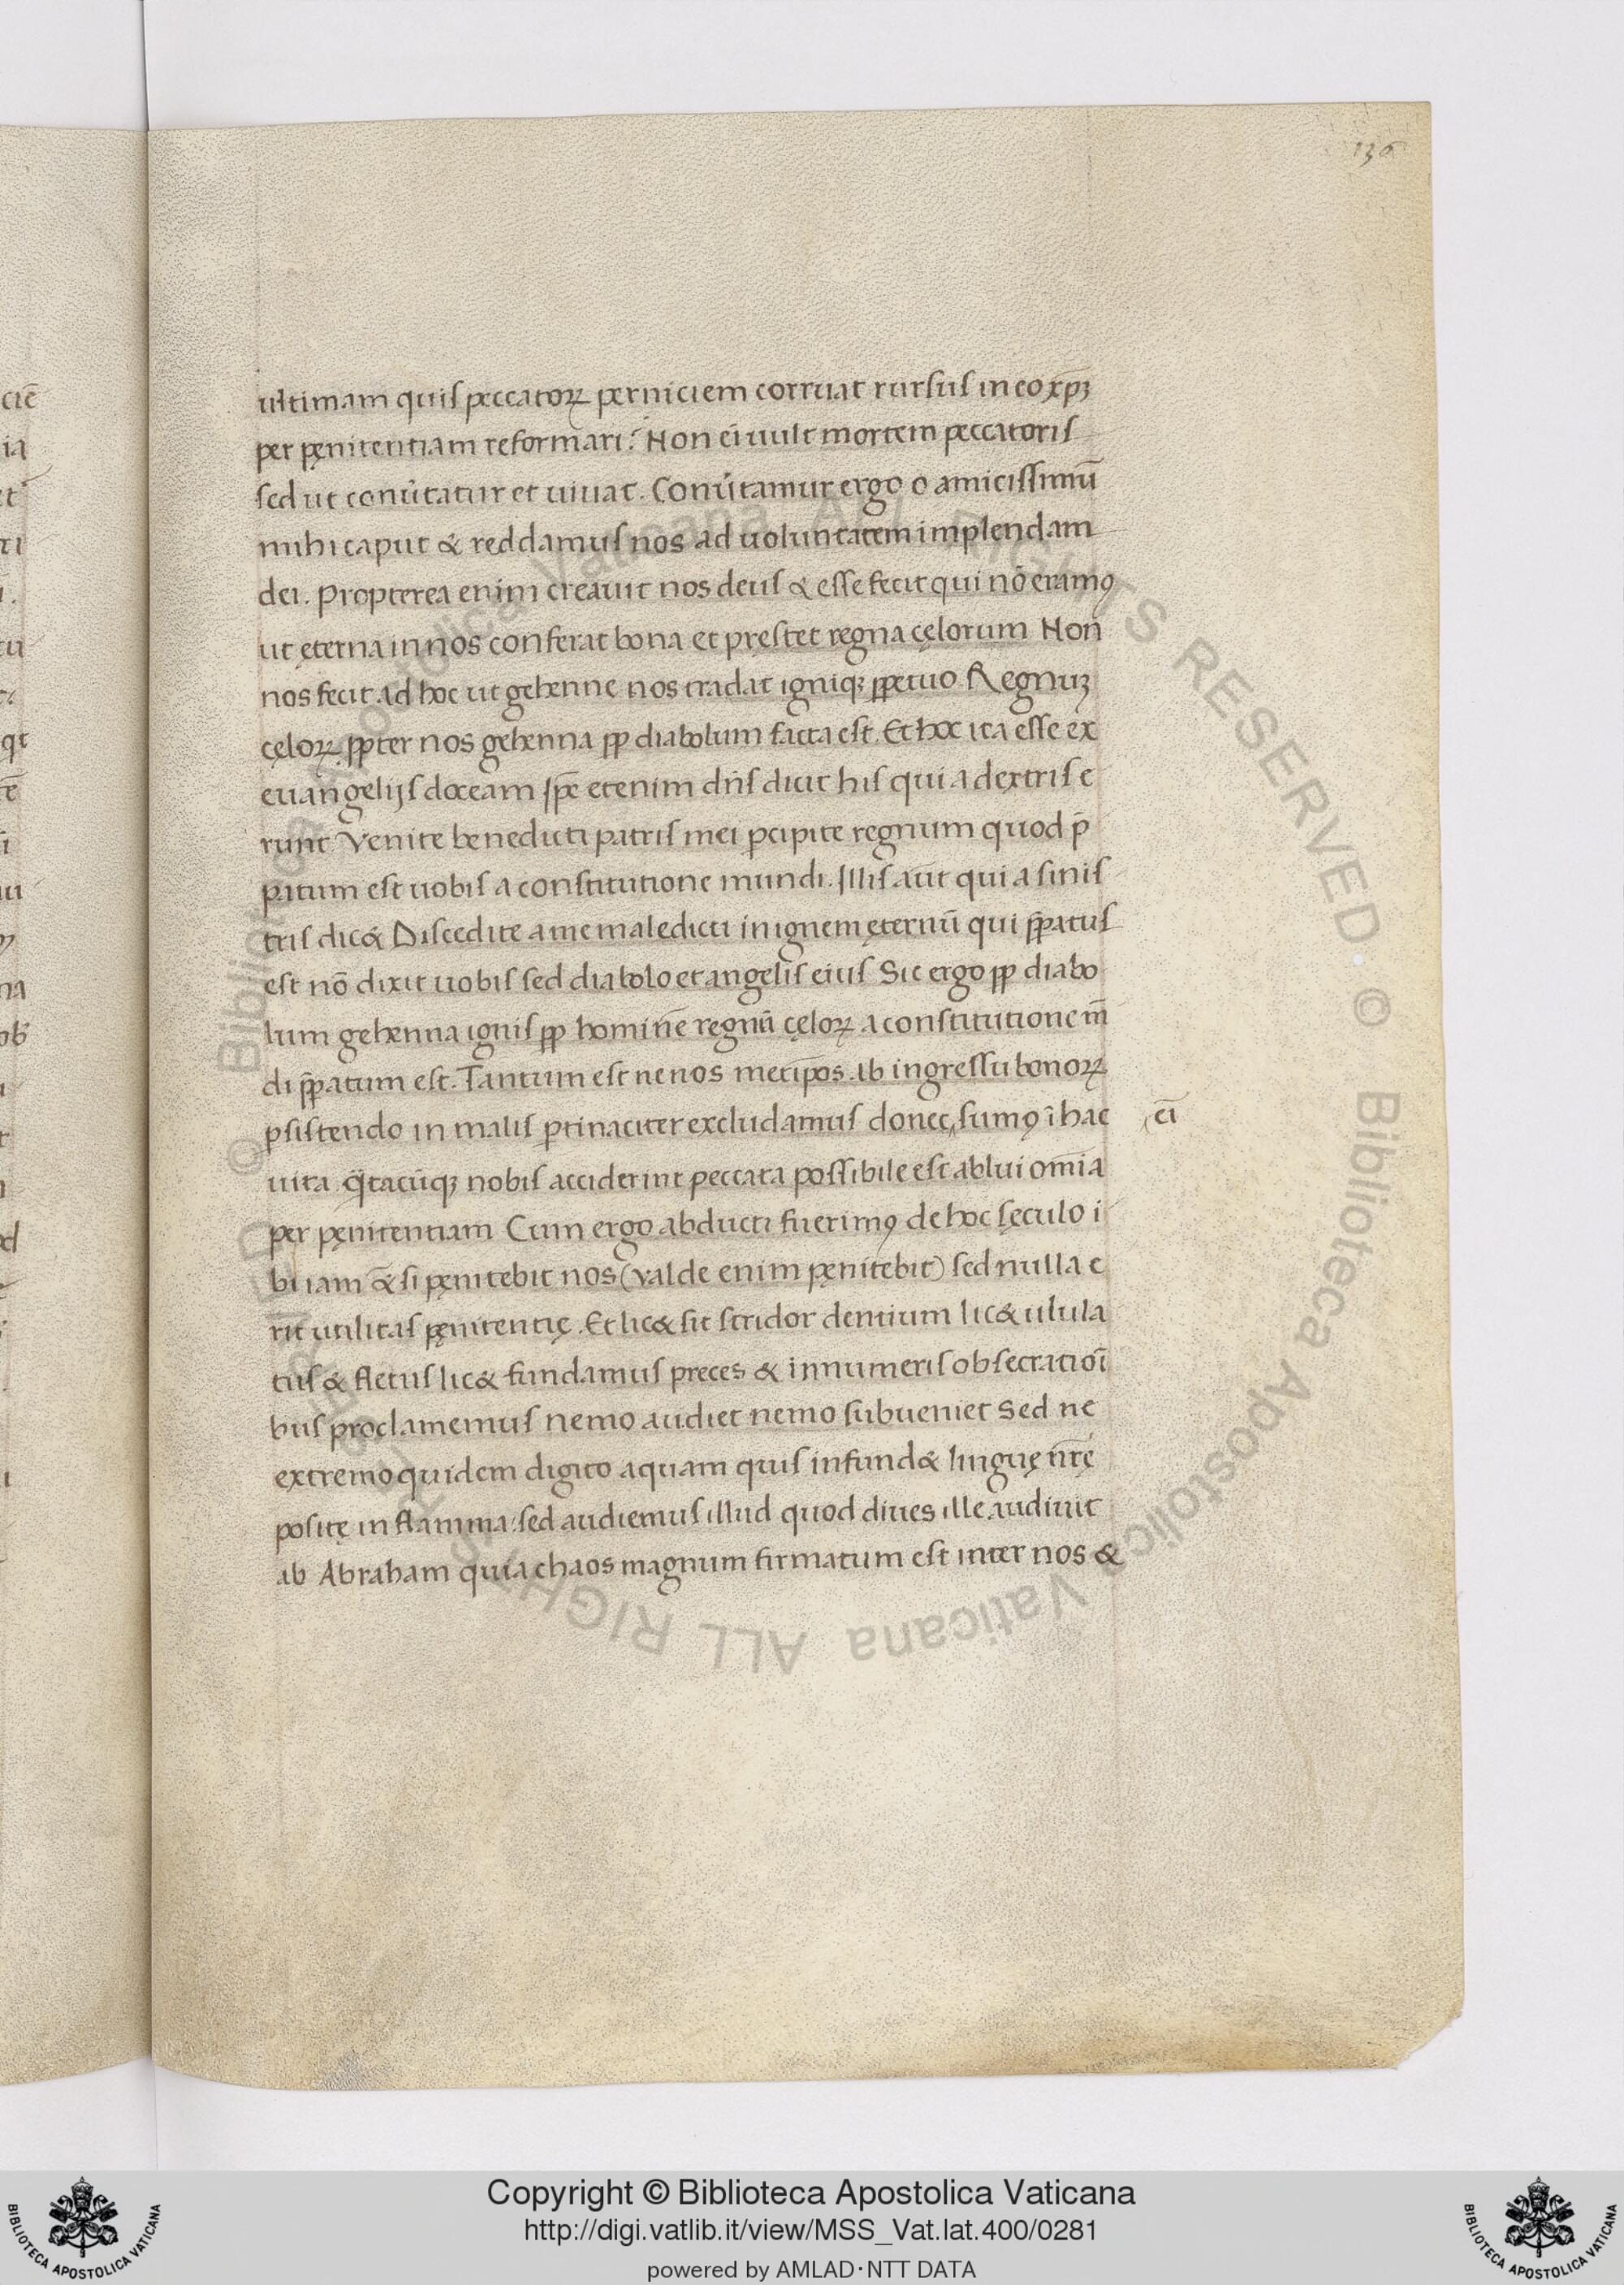 136
ultimam quis peccatoꝝ perniciem corruat rursus in eo xp̄ꝫ
per pęnitentiam reformari? Non ei̅ uult mortem peccatoris
sed ut conu̅tatur et uiuat. Conu̅tamur ergo o amicissimū
mihi caput & reddamus nos ad uoluntatem implendam
dei. Propterea enim creauit nos deus & esse fecit qui nō eramꝯ
ut ęterna in nos conferat bona et pręstet regna cęlorum Non
nos fecit ad hoc ut gehenne nos tradat igniqꝫ ꝑpetuo. Regnuꝫ
cęloꝝ ꝓpter nos gehenna ꝓp diabolum facta est. Et hoc ita esse ex
euangelijs doceam ip̄e etenim dn̄s dicit his qui a dextris e
runt Venite benedicti patris mei ꝑcipite regnum quod p̄
patum est uobis a constitutione mundi. Illis aūt qui a sinis
tris dic& Discedite a me maledicti in ignem ęternū qui p̄patus
est nō dixit uobis sed diabolo et angelis eius Sic ergo ꝓp diabo
lum gehenna ignis ꝓp hominē regnū cęloꝝ a constitutione m̄
di p̄patum est. Tantum est ne nos metip̄os ab ingressu bonoꝝ
ꝑsistendo in malis ꝑtinaciter excludamus donec sumꝯ ī hac
ei̅
uita q̄tacūqꝫ nobis acciderint peccata possibile est ablui omīa
per pęnitentiam Cum ergo abducti fuerimꝯ de hoc sęculo i
bi iam & si pęnitebit nos (valde enim pęnitebit) sed nulla e
rit utilitas pęnitentię. Et lic& sit stridor dentium lic& ulula
tus & fletus lic& fundamus preces & innumeris obsecratioī
bus proclamemus nemo audiet nemo subueniet Sed ne
extremo quidem digito aquam quis infund& linguę nr̄ę
positę in flamma: sed audiemus illud quod diues ille audiuit
ab Abraham quia chaos magnum firmatum est inter nos &
© Biblioteca Apostolica Vaticana ALL RIGHTS RESERVED
Copyright © Biblioteca Apostolica Vaticana
http://digi.vatlib.it/view/MSS_Vat.lat.400/0281
powered by AMLAD·NTT DATA
BIBLIOTECA APOSTOLICA VATICANA
BIBLIOTECA APOSTOLICA VATICANA